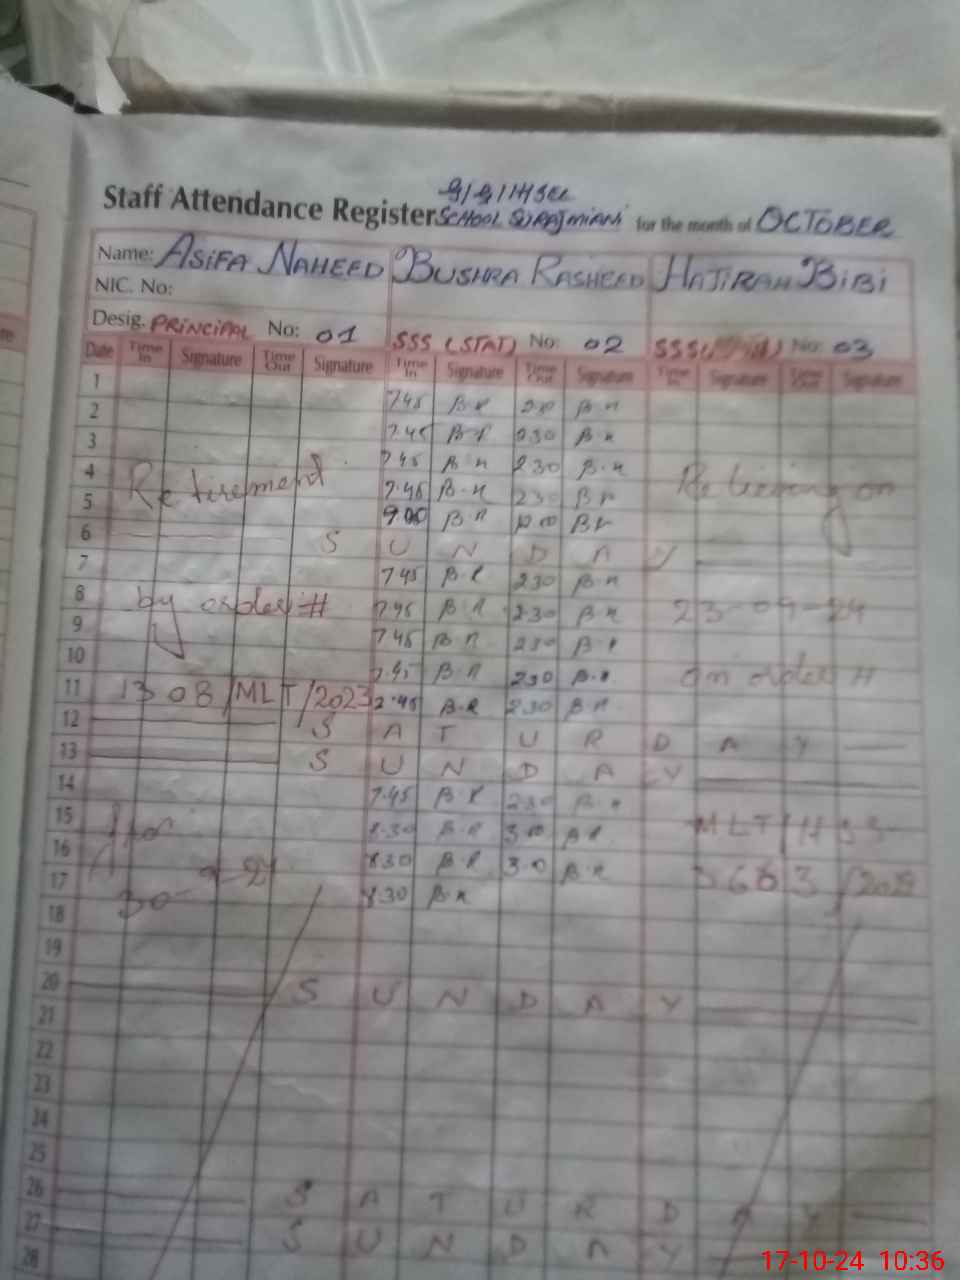 Staff Attendance Register SCHOOL SURAJMIANI for the month of OCTOBER
Name: ASIFA NAHEED BUSHRA RASHEED HAJIRAH BIBI
NIC. No:
Desig. PRINCIPAL No: 01 SSS (STAT) No: 02 SSS No: 03
Date Time In Signature Time Out Signature Time In Signature Time Out Signature Time In Signature Time Out Signature
1 7.45 B.R B.R
2 7.45 B.R 230 B.R
3 7.45 B.R 230 B.R
4 Retirement 7.45 B.R 230 B.R on
5 9.00 B.R 12.00 B.R
6 S U N D A Y
7 7.45 B.R 230 B.R
8 by order # 7.45 B.R 230 B.R 23-09-24
9 7.45 B.R 230 B.R
10 7.45 B.R 230 B.R on order #
11 1308/MLT/2023 7.45 B.R 230 B.R
12 S A T U R D A Y
13 S U N D A Y
14 7.45 B.R 230 B.R
15 8.30 B.R 3.00 B.R MLT/H
16 8.30 B.R 3.0 B.R
17 8.30 B.R
18
19
20 S U N D A Y
21
22
23
24
25
26 S A T U R D A Y
27 S U N D A Y
28
17-10-24 10:36